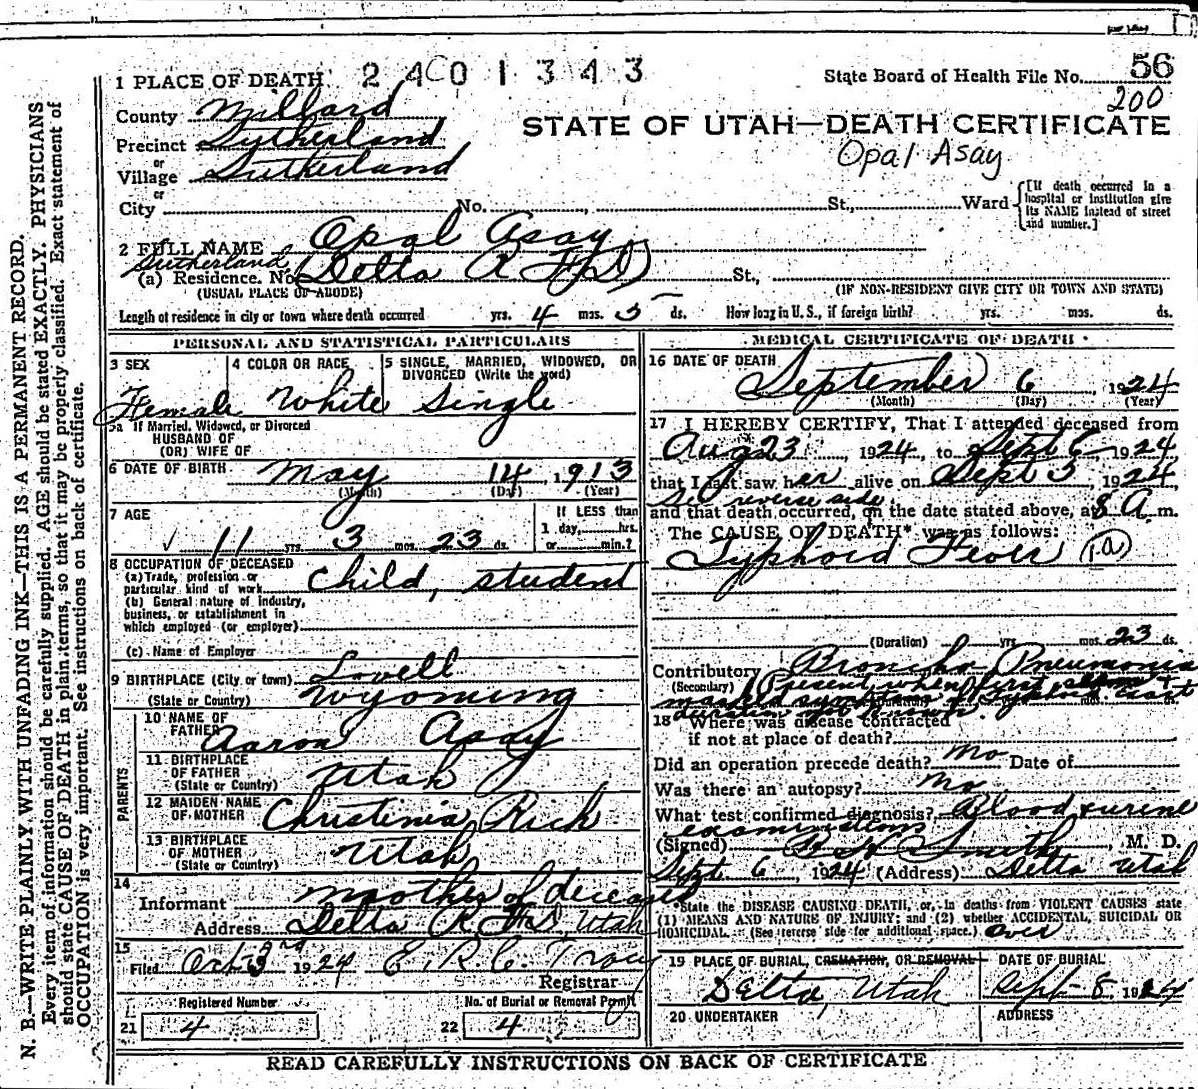 1 PLACE OF DEATH 2 4 0 1 3 4 3
State Board of Health File No. 56
200
County Millard
STATE OF UTAH—DEATH CERTIFICATE
Precinct Sutherland
Opal Asay
or
Village Sutherland
or
City No. St., Ward
[If death occurred in a hospital or institution give its NAME instead of street and number.]
2 FULL NAME Opal Asay
Sutherland
(a) Residence. No. (Delta R F D) St.,
(USUAL PLACE OF ABODE) (IF NON-RESIDENT GIVE CITY OR TOWN AND STATE)
Length of residence in city or town where death occurred yrs. 4 mos. 5 ds. How long in U. S., if foreign birth? yrs. mos. ds.
PERSONAL AND STATISTICAL PARTICULARS
3 SEX 4 COLOR OR RACE 5 SINGLE, MARRIED, WIDOWED, OR DIVORCED (Write the word)
Female White Single
5a If Married, Widowed, or Divorced
HUSBAND OF
(OR) WIFE OF
6 DATE OF BIRTH May 14, 1913
(Month) (Day) (Year)
7 AGE 11 yrs. 3 mos. 23 ds.
If LESS than
1 day, hrs.
or min.?
8 OCCUPATION OF DECEASED
(a) Trade, profession or particular kind of work Child, student
(b) General nature of industry, business, or establishment in which employed (or employer)
(c) Name of Employer
9 BIRTHPLACE (City or town) Lovell
(State or Country) Wyoming
PARENTS
10 NAME OF FATHER Aaron Asay
11 BIRTHPLACE OF FATHER Utah
(State or Country)
12 MAIDEN NAME OF MOTHER Christenia Rich
13 BIRTHPLACE OF MOTHER Utah
(State or Country)
14
Informant Mother of deceased
Address Delta R F D, Utah
15
Filed Oct 3rd 1924 E. R. C. Tracy
Registrar
Registered Number
21 4
No. of Burial or Removal Permit
22 4
MEDICAL CERTIFICATE OF DEATH
16 DATE OF DEATH
September 6 1924
(Month) (Day) (Year)
17 I HEREBY CERTIFY, That I attended deceased from
Aug 23, 1924, to Sept 6 1924,
that I last saw her alive on Sept 5, 1924,
See reverse side
and that death occurred, on the date stated above, at 8 A. m.
The CAUSE OF DEATH* was as follows:
Typhoid Fever (1a)
(Duration) yrs. mos. 23 ds.
Contributory Broncho Pneumonia
(Secondary) Present when first seen &
18 Where was disease contracted
if not at place of death?
Did an operation precede death? No Date of
Was there an autopsy? No
What test confirmed diagnosis? Blood & urine
examinations
(Signed) Smith, M. D.
Sept 6, 1924 (Address) Delta Utah
*State the DISEASE CAUSING DEATH, or, in deaths from VIOLENT CAUSES state
(1) MEANS AND NATURE OF INJURY; and (2) whether ACCIDENTAL, SUICIDAL OR
HOMICIDAL. (See reverse side for additional space.) over
19 PLACE OF BURIAL, CREMATION, OR REMOVAL DATE OF BURIAL
Delta, Utah Sept 8 1924
20 UNDERTAKER ADDRESS
READ CAREFULLY INSTRUCTIONS ON BACK OF CERTIFICATE
N. B.—WRITE PLAINLY WITH UNFADING INK—THIS IS A PERMANENT RECORD.
Every item of information should be carefully supplied. AGE should be stated EXACTLY. PHYSICIANS
should state CAUSE OF DEATH in plain terms, so that it may be properly classified. Exact statement of
OCCUPATION is very important. See instructions on back of certificate.